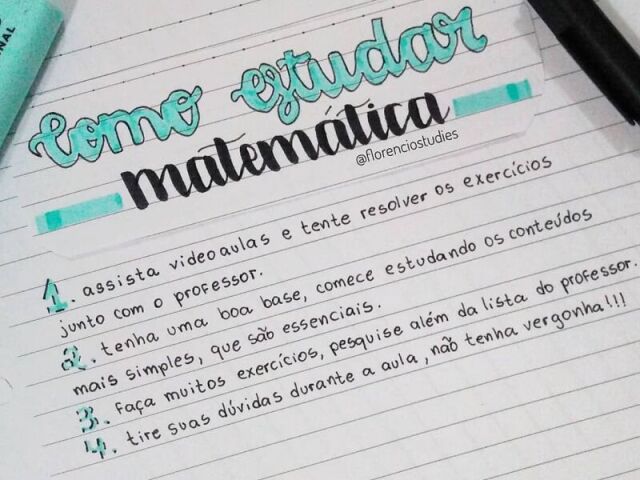 como estudar
matemática
@florenciostudies
1. assista videoaulas e tente resolver os exercícios
junto com o professor.
2. tenha uma boa base, comece estudando os conteúdos
mais simples, que são essenciais.
3. faça muitos exercícios, pesquise além da lista do professor.
4. tire suas dúvidas durante a aula, não tenha vergonha!!!